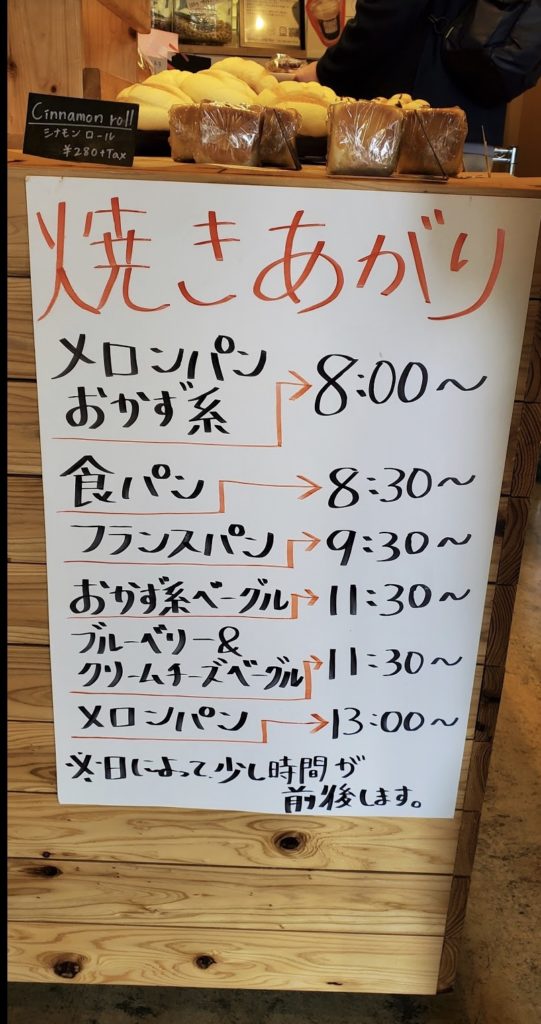 Cinnamon roll
シナモン ロール
¥280+Tax
焼きあがり
メロンパン
おかず系 → 8:00〜
食パン → 8:30〜
フランスパン → 9:30〜
おかず系ベーグル → 11:30〜
ブルーベリー&
クリームチーズベーグル → 11:30〜
メロンパン → 13:00〜
※日によって、少し時間が
前後します。